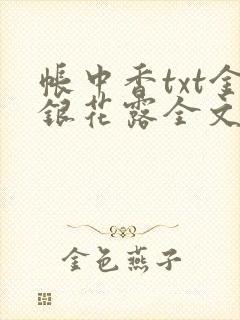 帳中香txt金
銀花露全文
金色燕子